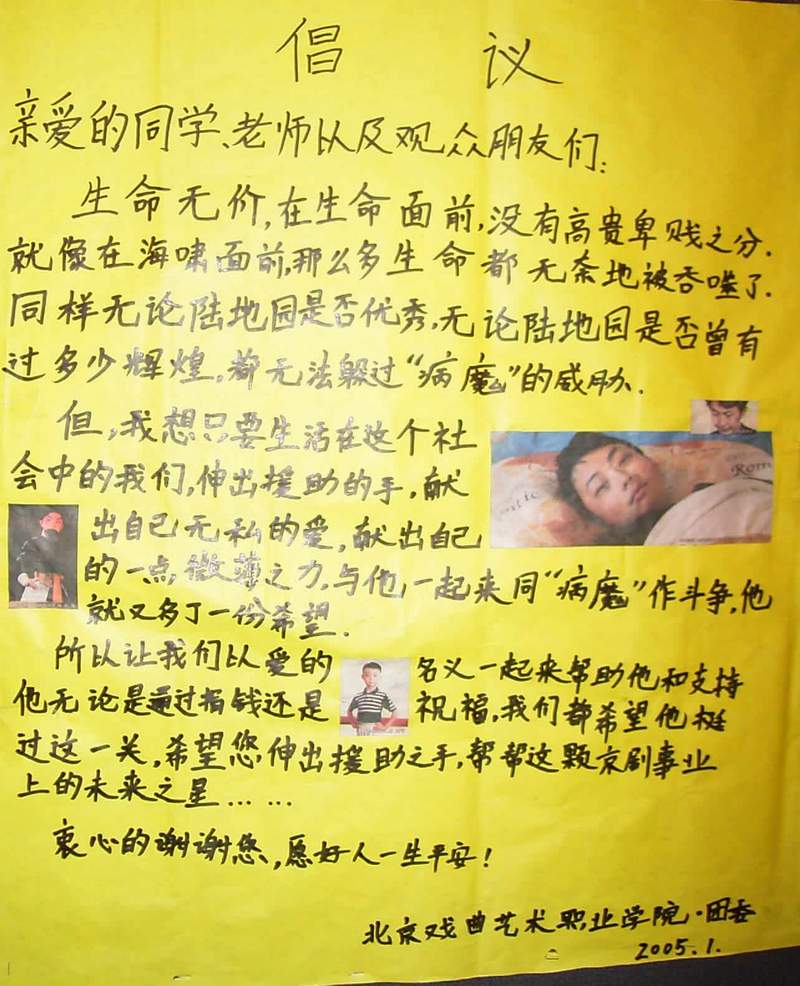 倡 议
亲爱的同学、老师以及观众朋友们:
生命无价,在生命面前,没有高贵卑贱之分.
就像在海啸面前,那么多生命都无奈地被吞噬了.
同样无论陆地园是否优秀,无论陆地园是否曾有
过多少辉煌,都无法躲过“病魔”的威胁.
但,我想只要生活在这个社
会中的我们,伸出援助的手,献
出自己无私的爱,献出自己
的一点微薄之力,与他一起来同“病魔”作斗争,他
就又多了一份希望.
所以让我们以爱的名义一起来帮助他和支持
他无论是通过捐钱还是祝福,我们都希望他挺
过这一关,希望您伸出援助之手,帮帮这颗京剧事业
上的未来之星... ...
衷心的谢谢您,愿好人一生平安!
北京戏曲艺术职业学院·团委
2005.1.